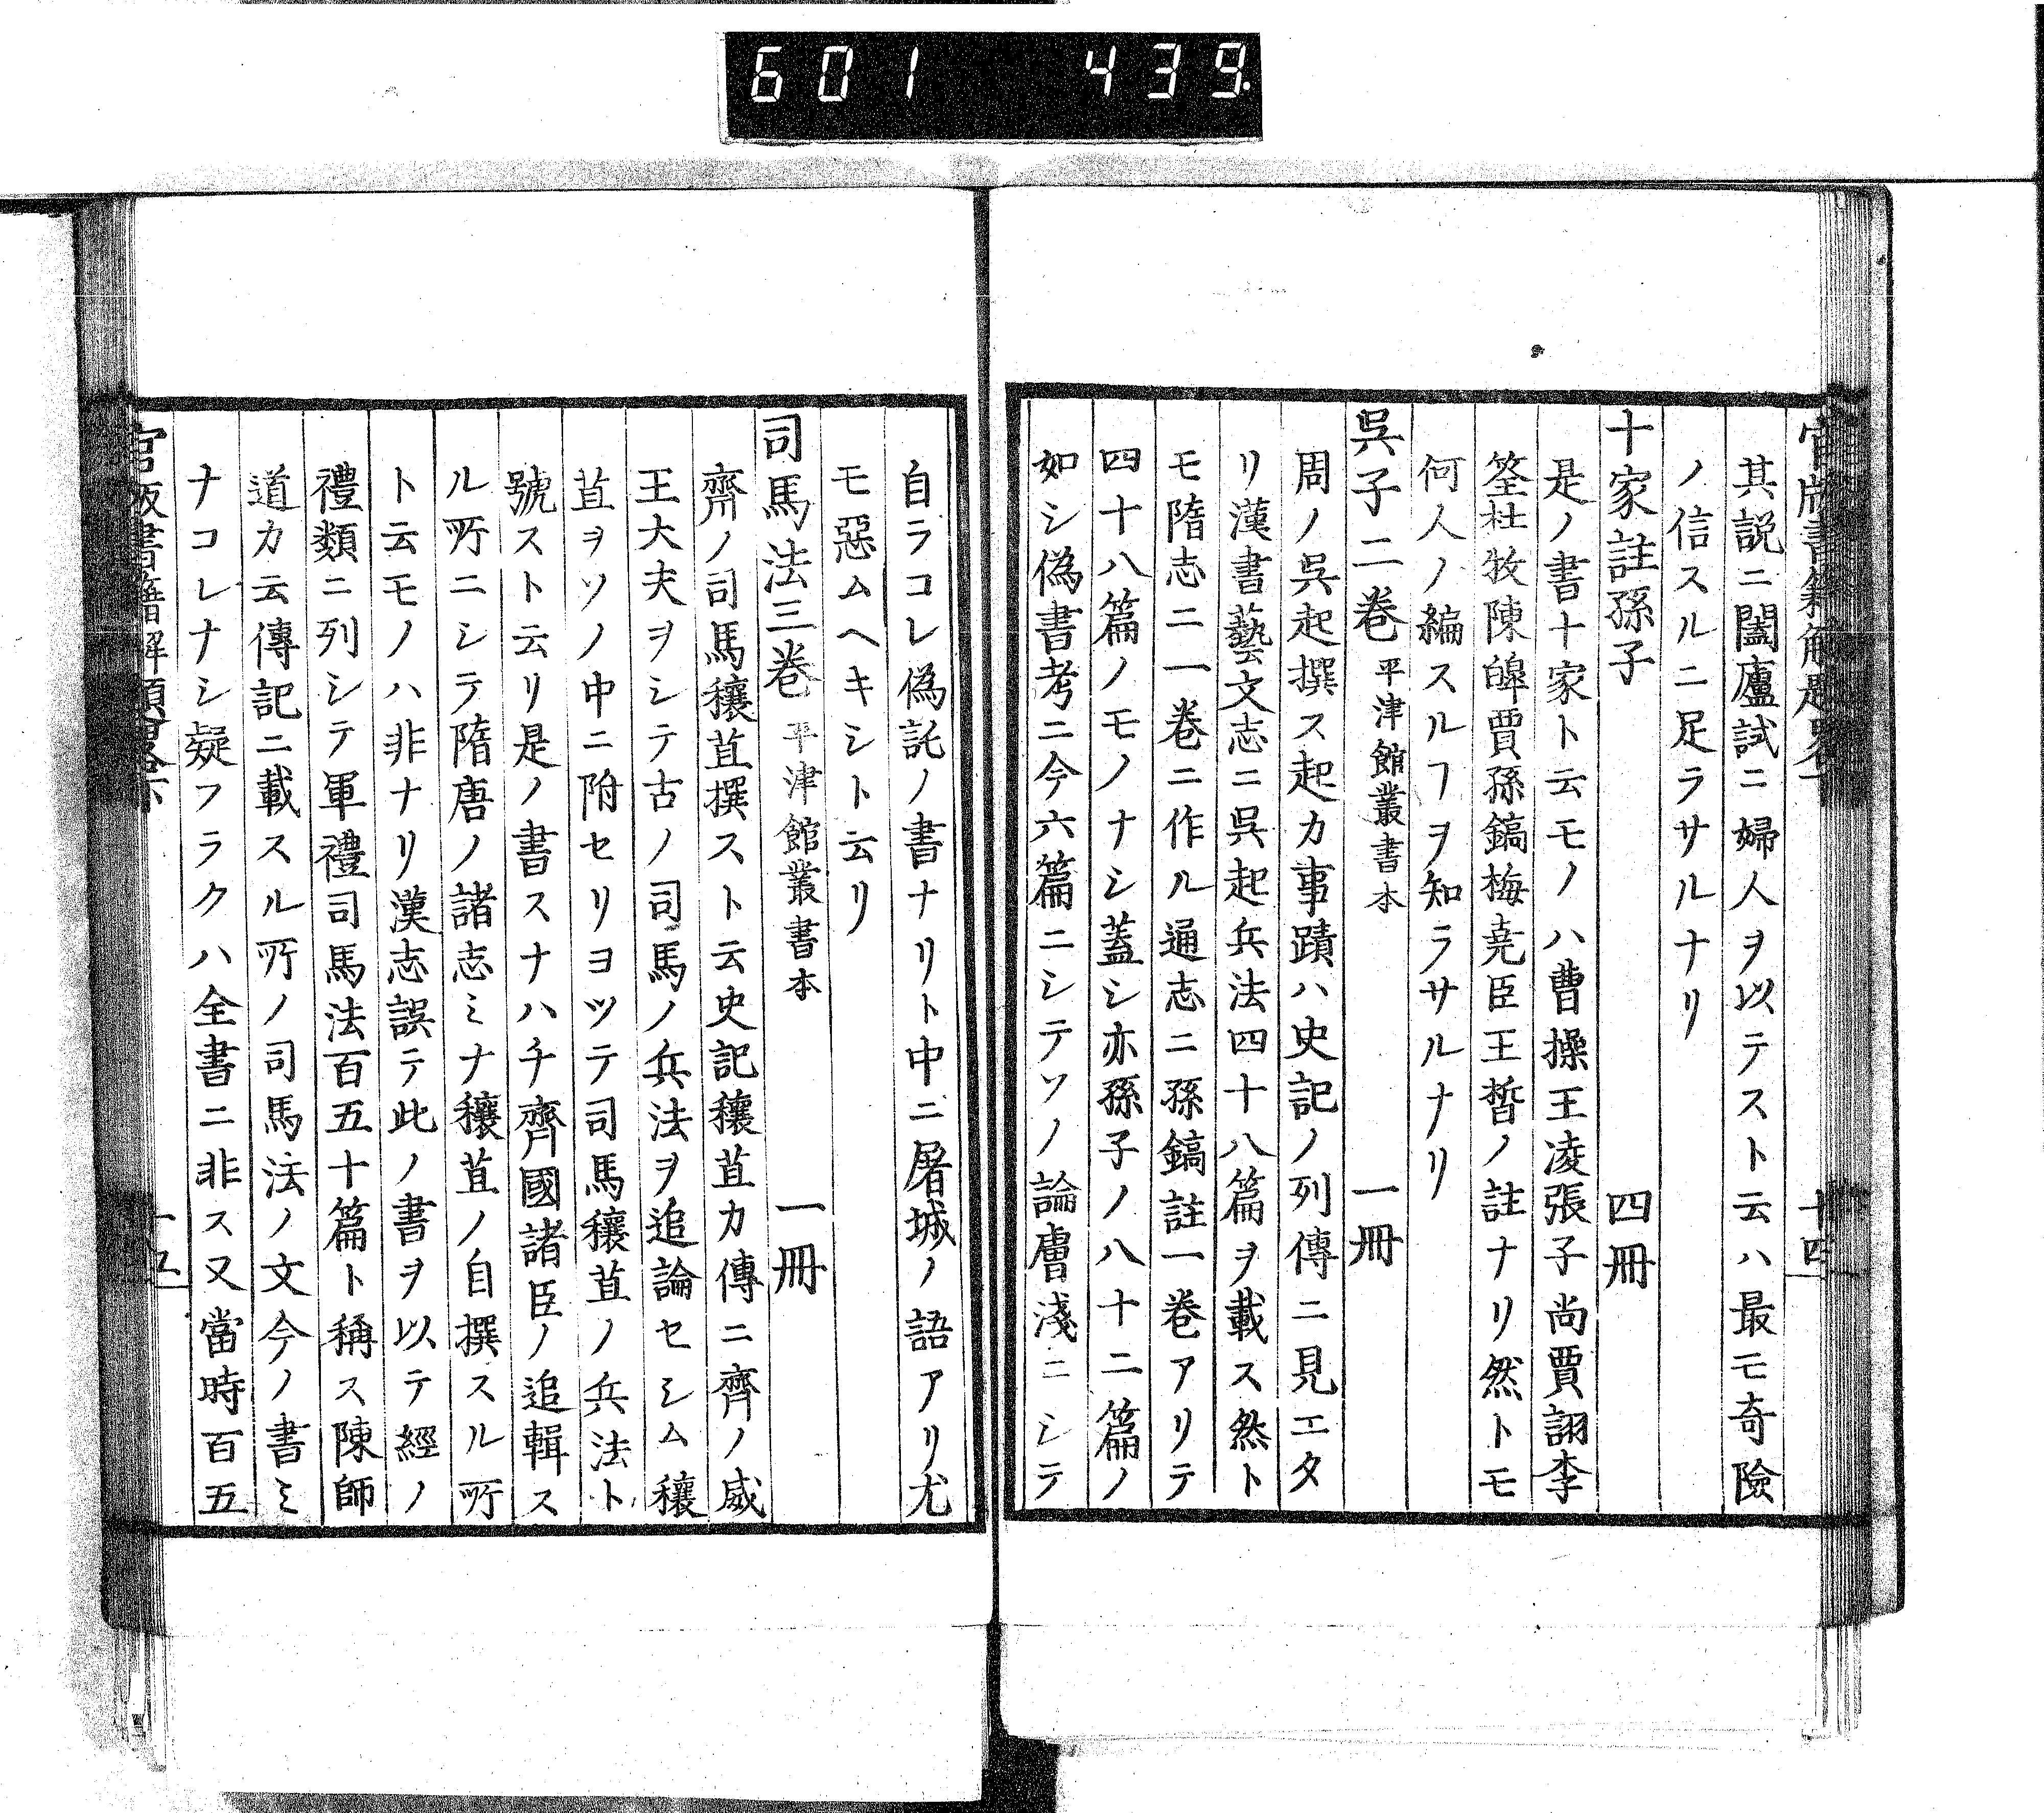 601 439.
官版書籍解題略下 十四
其説ニ闔廬試ニ婦人ヲ以テスト云ハ最モ奇險
ノ信スルニ足ラサルナリ
十家註孫子 四冊
是ノ書十家ト云モノハ曹操王凌張子尚賈詡李
筌杜牧陳皥賈孫鎬梅堯臣王晳ノ註ナリ然トモ
何人ノ編スルヿヲ知ラサルナリ
呉子二巻 平津館叢書本 一冊
周ノ呉起撰ス起カ事蹟ハ史記ノ列傳ニ見エタ
リ漢書藝文志ニ呉起兵法四十八篇ヲ載ス然ト
モ隋志ニ一巻ニ作ル通志ニ孫鎬註一巻アリテ
四十八篇ノモノナシ蓋シ亦孫子ノ八十二篇ノ
如シ偽書考ニ今六篇ニシテソノ論膚淺ニシテ
自ラコレ偽託ノ書ナリト中ニ屠城ノ語アリ尤
モ惡ムヘキシト云リ
司馬法三巻 平津館叢書本 一冊
齊ノ司馬穰苴撰スト云史記穰苴カ傳ニ齊ノ威
王大夫ヲシテ古ノ司馬ノ兵法ヲ追論セシム穰
苴ヲソノ中ニ附セリヨツテ司馬穰苴ノ兵法ト
號スト云リ是ノ書スナハチ齊國諸臣ノ追輯ス
ル所ニシテ隋唐ノ諸志ミナ穰苴ノ自撰スル所
ト云モノハ非ナリ漢志誤テ此ノ書ヲ以テ經ノ
禮類ニ列シテ軍禮司馬法百五十篇ト稱ス陳師
道カ云傳記ニ載スル所ノ司馬法ノ文今ノ書ミ
ナコレナシ疑フラクハ全書ニ非ス又當時百五
官版書籍解題略下 十五